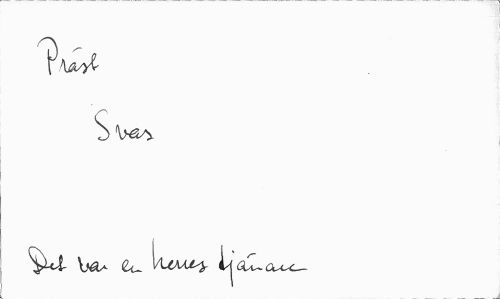 Präst
Svar
Det var en herres tjänare